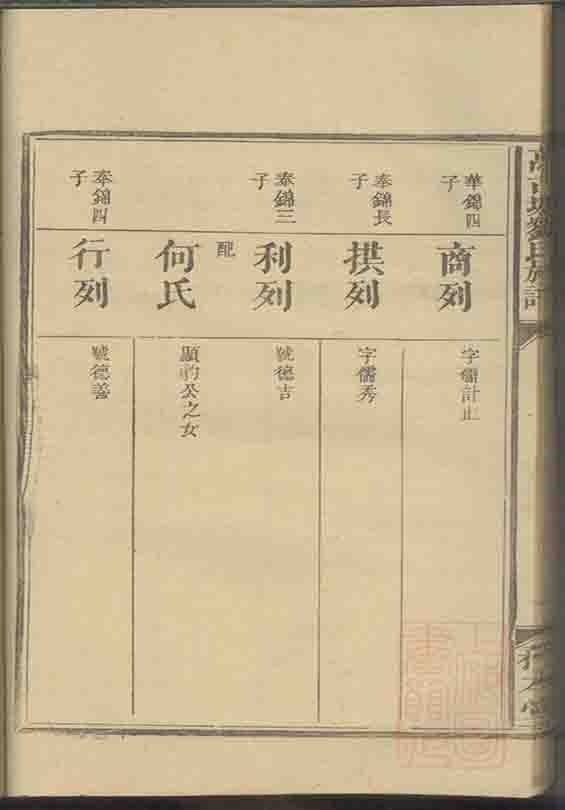 劉氏族
華錦四子
商列
字儒計止
奉錦長子
拱列
字儒秀
奉錦三子
利列
號德吉
配
何氏
顯韵公之女
奉錦四子
行列
號德善